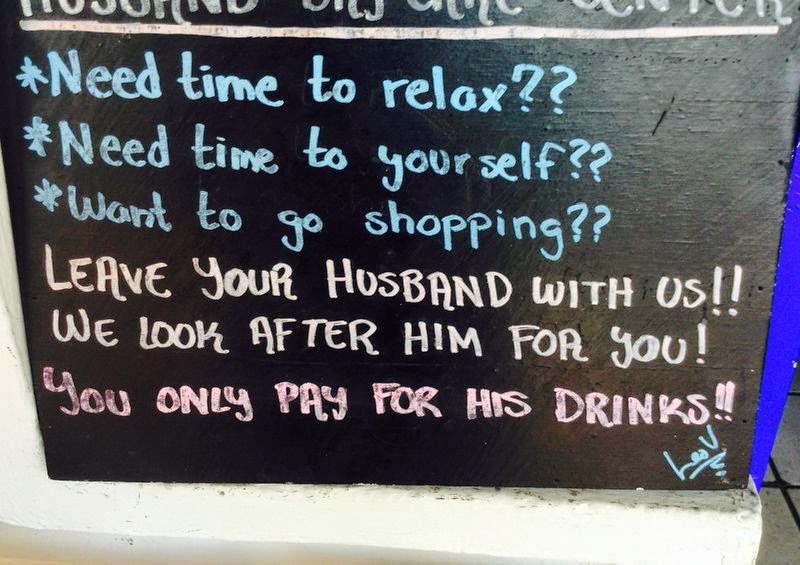 HUSBAND DAY CARE CENTER
*Need time to relax??
*Need time to yourself??
*Want to go shopping??
LEAVE YOUR HUSBAND WITH US!!
WE LOOK AFTER HIM FOR YOU!
YOU ONLY PAY FOR HIS DRINKS!!